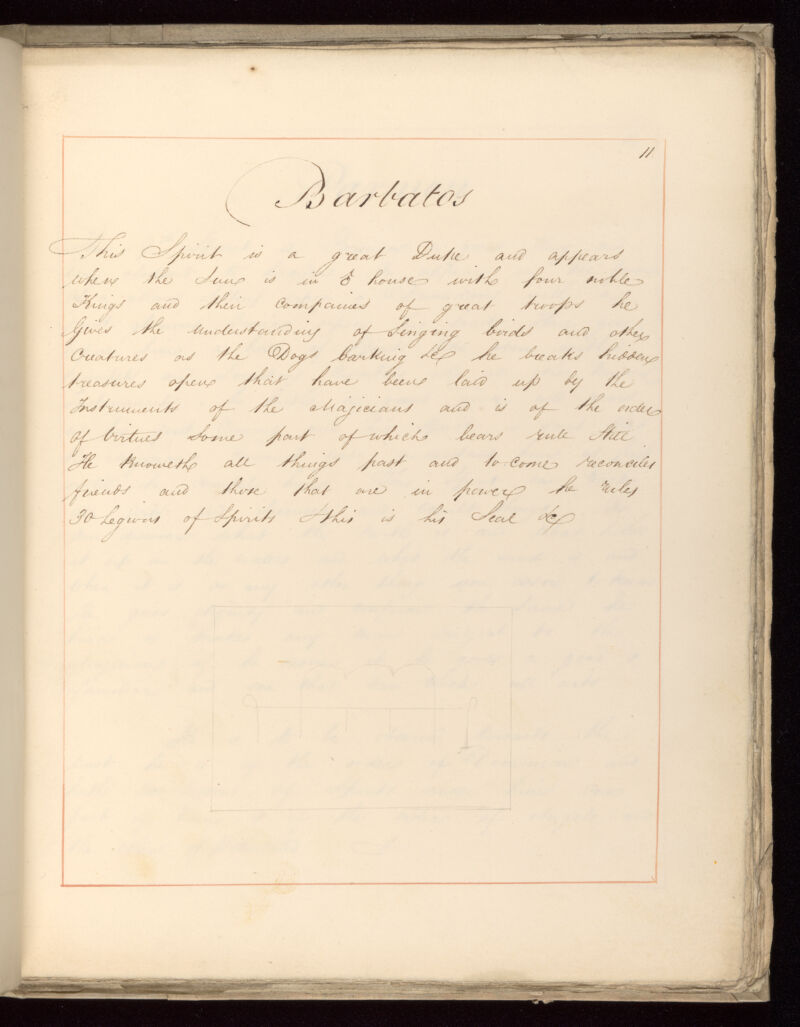 11
Barbatos
This Spirit is a great Duke and appears
when the Sun is in house with four noble
Kings and their companies of great troops he
Gives the understanding of Singing birds and other
Creatures as the Dogs barking &c he breaks hidden
treasures open that have been laid up by the
Instruments of the Magicians and is of the order
of Virtues Some part of which bears rule Still
He Knoweth all things past and to come reconciles
friends and those that are in power he rules
30 Legions of Spirits & this is his Seal &c